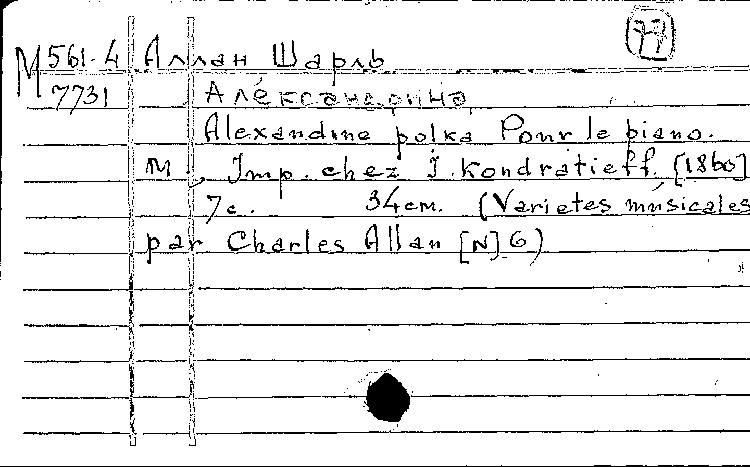 77
М 561-4 Аллан Шарль
7731 Александрина
Alexandine polka Pour le piano.
М., Imp. chez J. Kondratieff. [1860]
7 с. 34 см. (Varietes musicales
par Charles Allan [N] 6)